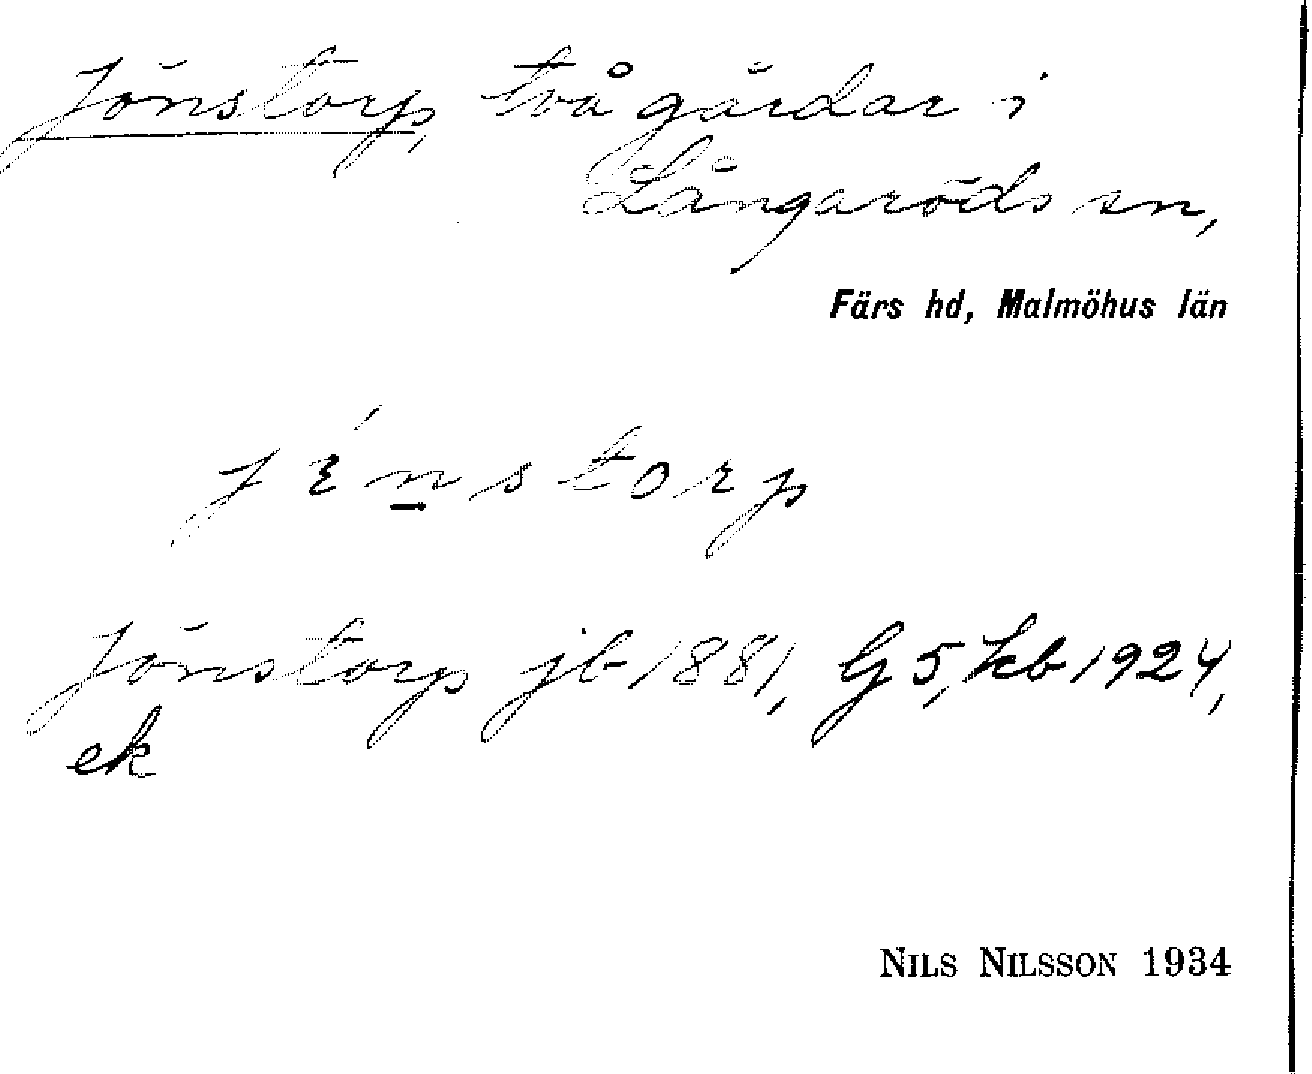 Jönstorp, två gårdar i
Långaröds sn,
Färs hd, Malmöhus län
jénstorp
Jönstorp jb 1881, G5, kb 1924,
ek
NILS NILSSON 1934